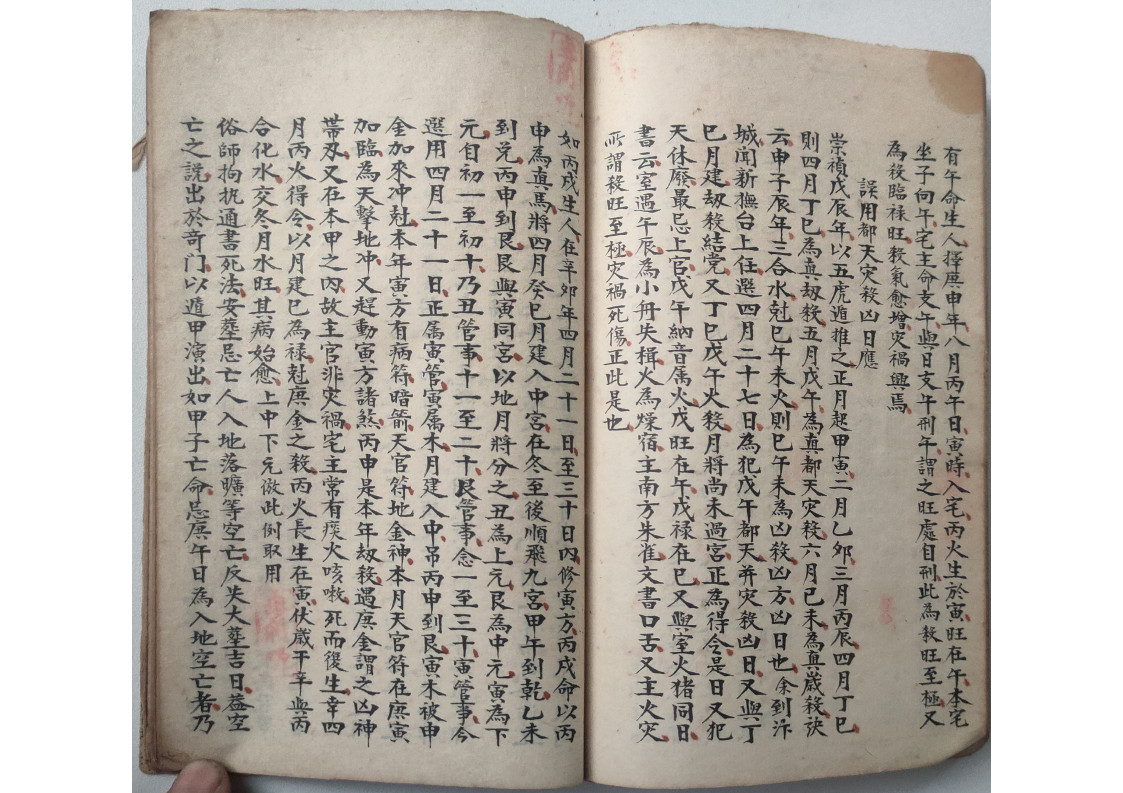 有午命生人擇庚申年八月丙午日寅時入宅丙火生於寅旺在午本宅
坐子向午宅主命支午與日支午刑午謂之旺處自刑此為殺旺至極又
為殺臨祿旺殺氣愈增灾禍興焉
誤用都天灾殺凶日應
崇禎戊辰年以五虎遁推之正月起甲寅二月乙夘三月丙辰四月丁巳
則四月丁巳為真劫殺五月戊午為真都天灾殺六月己未為真歲殺訣
云申子辰年三合水尅巳午未火則巳午未為凶殺凶方凶日也余到汴
城聞新撫台上任選四月二十七日為犯戊午都天并灾殺凶日又與丁
巳月建刼殺結党又丁巳戊午火殺月將尚未過宮正為得令是日又犯
天休廢最忌上官戊午納音属火戊旺在午戊禄在巳又與室火猪同日
書云室遇午辰為小舟失楫火為燥宿主南方朱雀文書口舌又主火灾
所謂殺旺至極灾禍死傷正此是也
如丙戌生人在辛夘年四月二十一日至三十日内修寅方丙戌命以丙
申為真馬將四月癸巳月建入中宮在冬至後順飛九宮甲午到乾乙未
到兑丙申到艮艮與寅同宮以地月將分之丑為上元艮為中元寅為下
元自初一至初十乃丑管事十一至二十艮管事念一至三十寅管事今
選用四月二十一日正属寅管寅属木月建入中吊丙申到艮寅木被申
金加來冲尅本年寅方有病符暗箭天官符地金神本月天官符在庚寅
加臨為天擊地冲又趕動寅方諸煞丙申是本年刼殺遇庚金謂之凶神
帯刄又在本甲之内故主官非灾禍宅主常有痰火咳嗽死而復生幸四
月丙火得令以月建巳為禄尅庚金之殺丙火長生在寅伏歲干辛與丙
合化水交冬月水旺其病始愈上中下元倣此例取用
俗師拘执通書死法安塟忌亡人入地落曠等空亡反失大塟吉日益空
亡之説出於竒门以遁甲演出如甲子亡命忌庚午日為入地空亡者乃